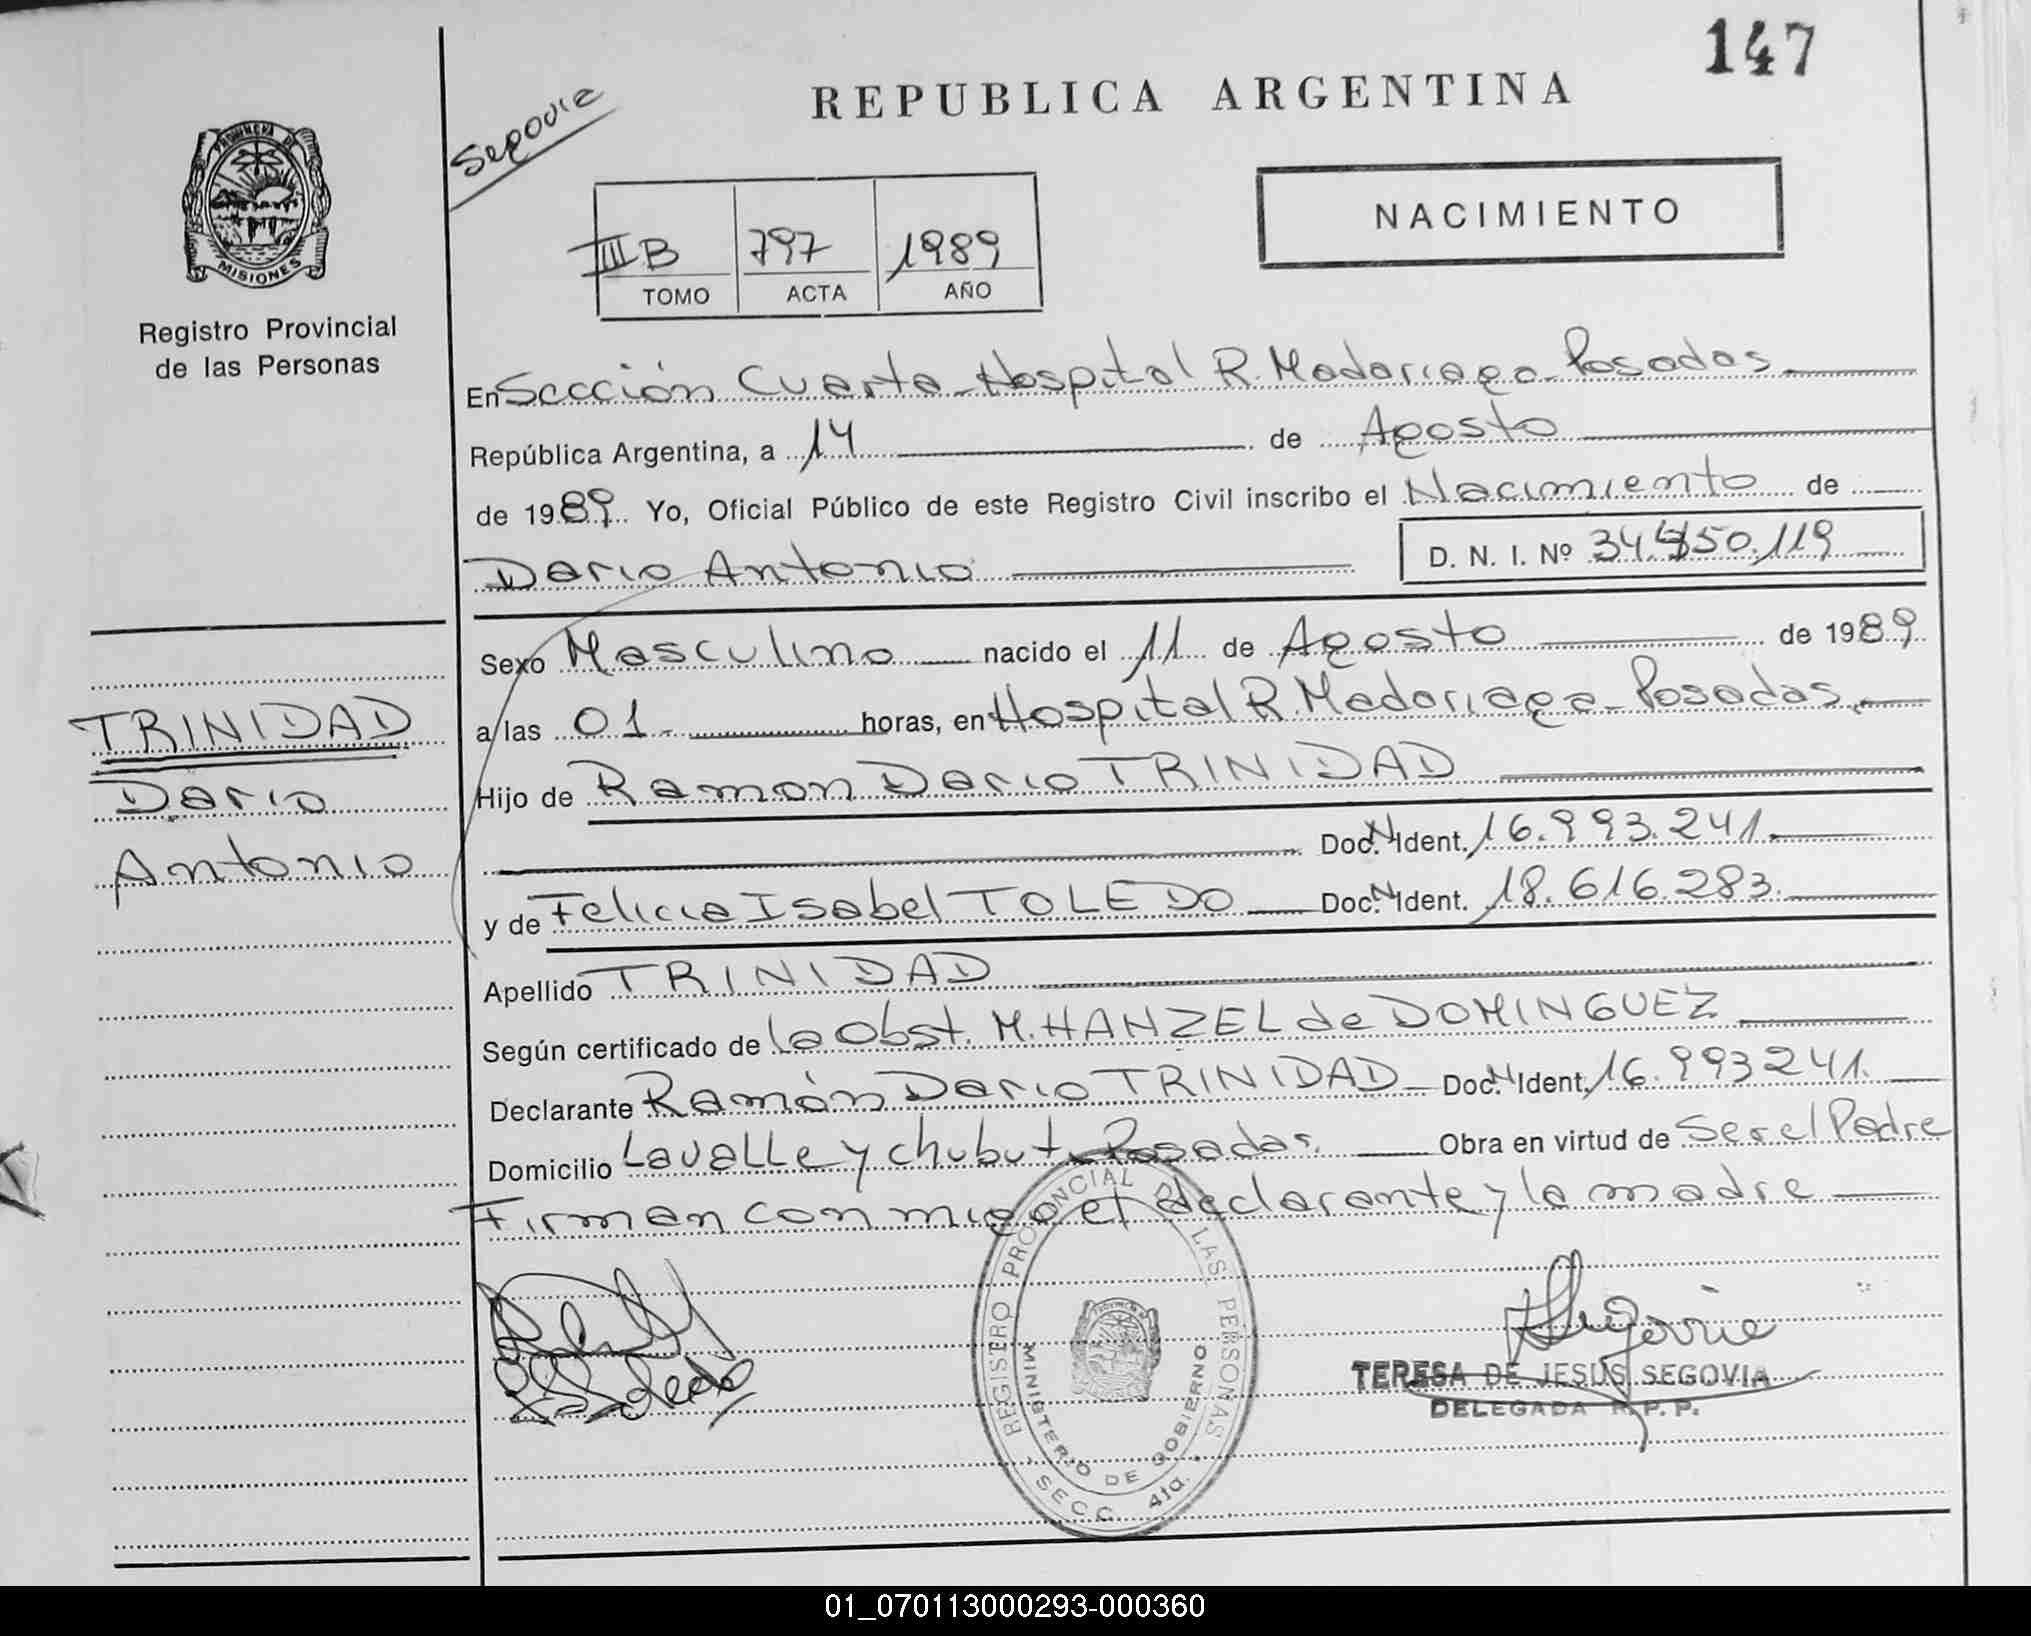 147
REPUBLICA ARGENTINA
Segovia
PROVINCIA DE
MISIONES
Registro Provincial
de las Personas
NACIMIENTO
III B 797 1989
TOMO ACTA AÑO
En Sección Cuarta - Hospital R. Madariaga - Posadas
República Argentina, a 14 de Agosto
de 1989 Yo, Oficial Público de este Registro Civil inscribo el Nacimiento de
Dario Antonio D. N. I. Nº 34.450.119
Sexo Masculino nacido el 11 de Agosto de 1989
a las 01 horas, en Hospital R. Madariaga - Posadas
Hijo de Ramon Dario TRINIDAD
Doc. N. Ident. 16.993.241.
y de Felicia Isabel TOLEDO Doc. N. Ident. 18.616.283.
Apellido TRINIDAD
Según certificado de la Obst. M. HANZEL de DOMINGUEZ
Declarante Ramón Dario TRINIDAD Doc. N. Ident. 16.993241.
Domicilio Lavalle y chubut - Posadas. Obra en virtud de Ser el Padre
Firman conmigo el declarante y la madre
TRINIDAD
Dario
Antonio
Toledo
REGISTRO PROVINCIAL DE LAS PERSONAS
MINISTERIO DE GOBIERNO
SECC. 4ta.
Segovia
TERESA DE JESUS SEGOVIA
DELEGADA R. P. P.
01_070113000293-000360